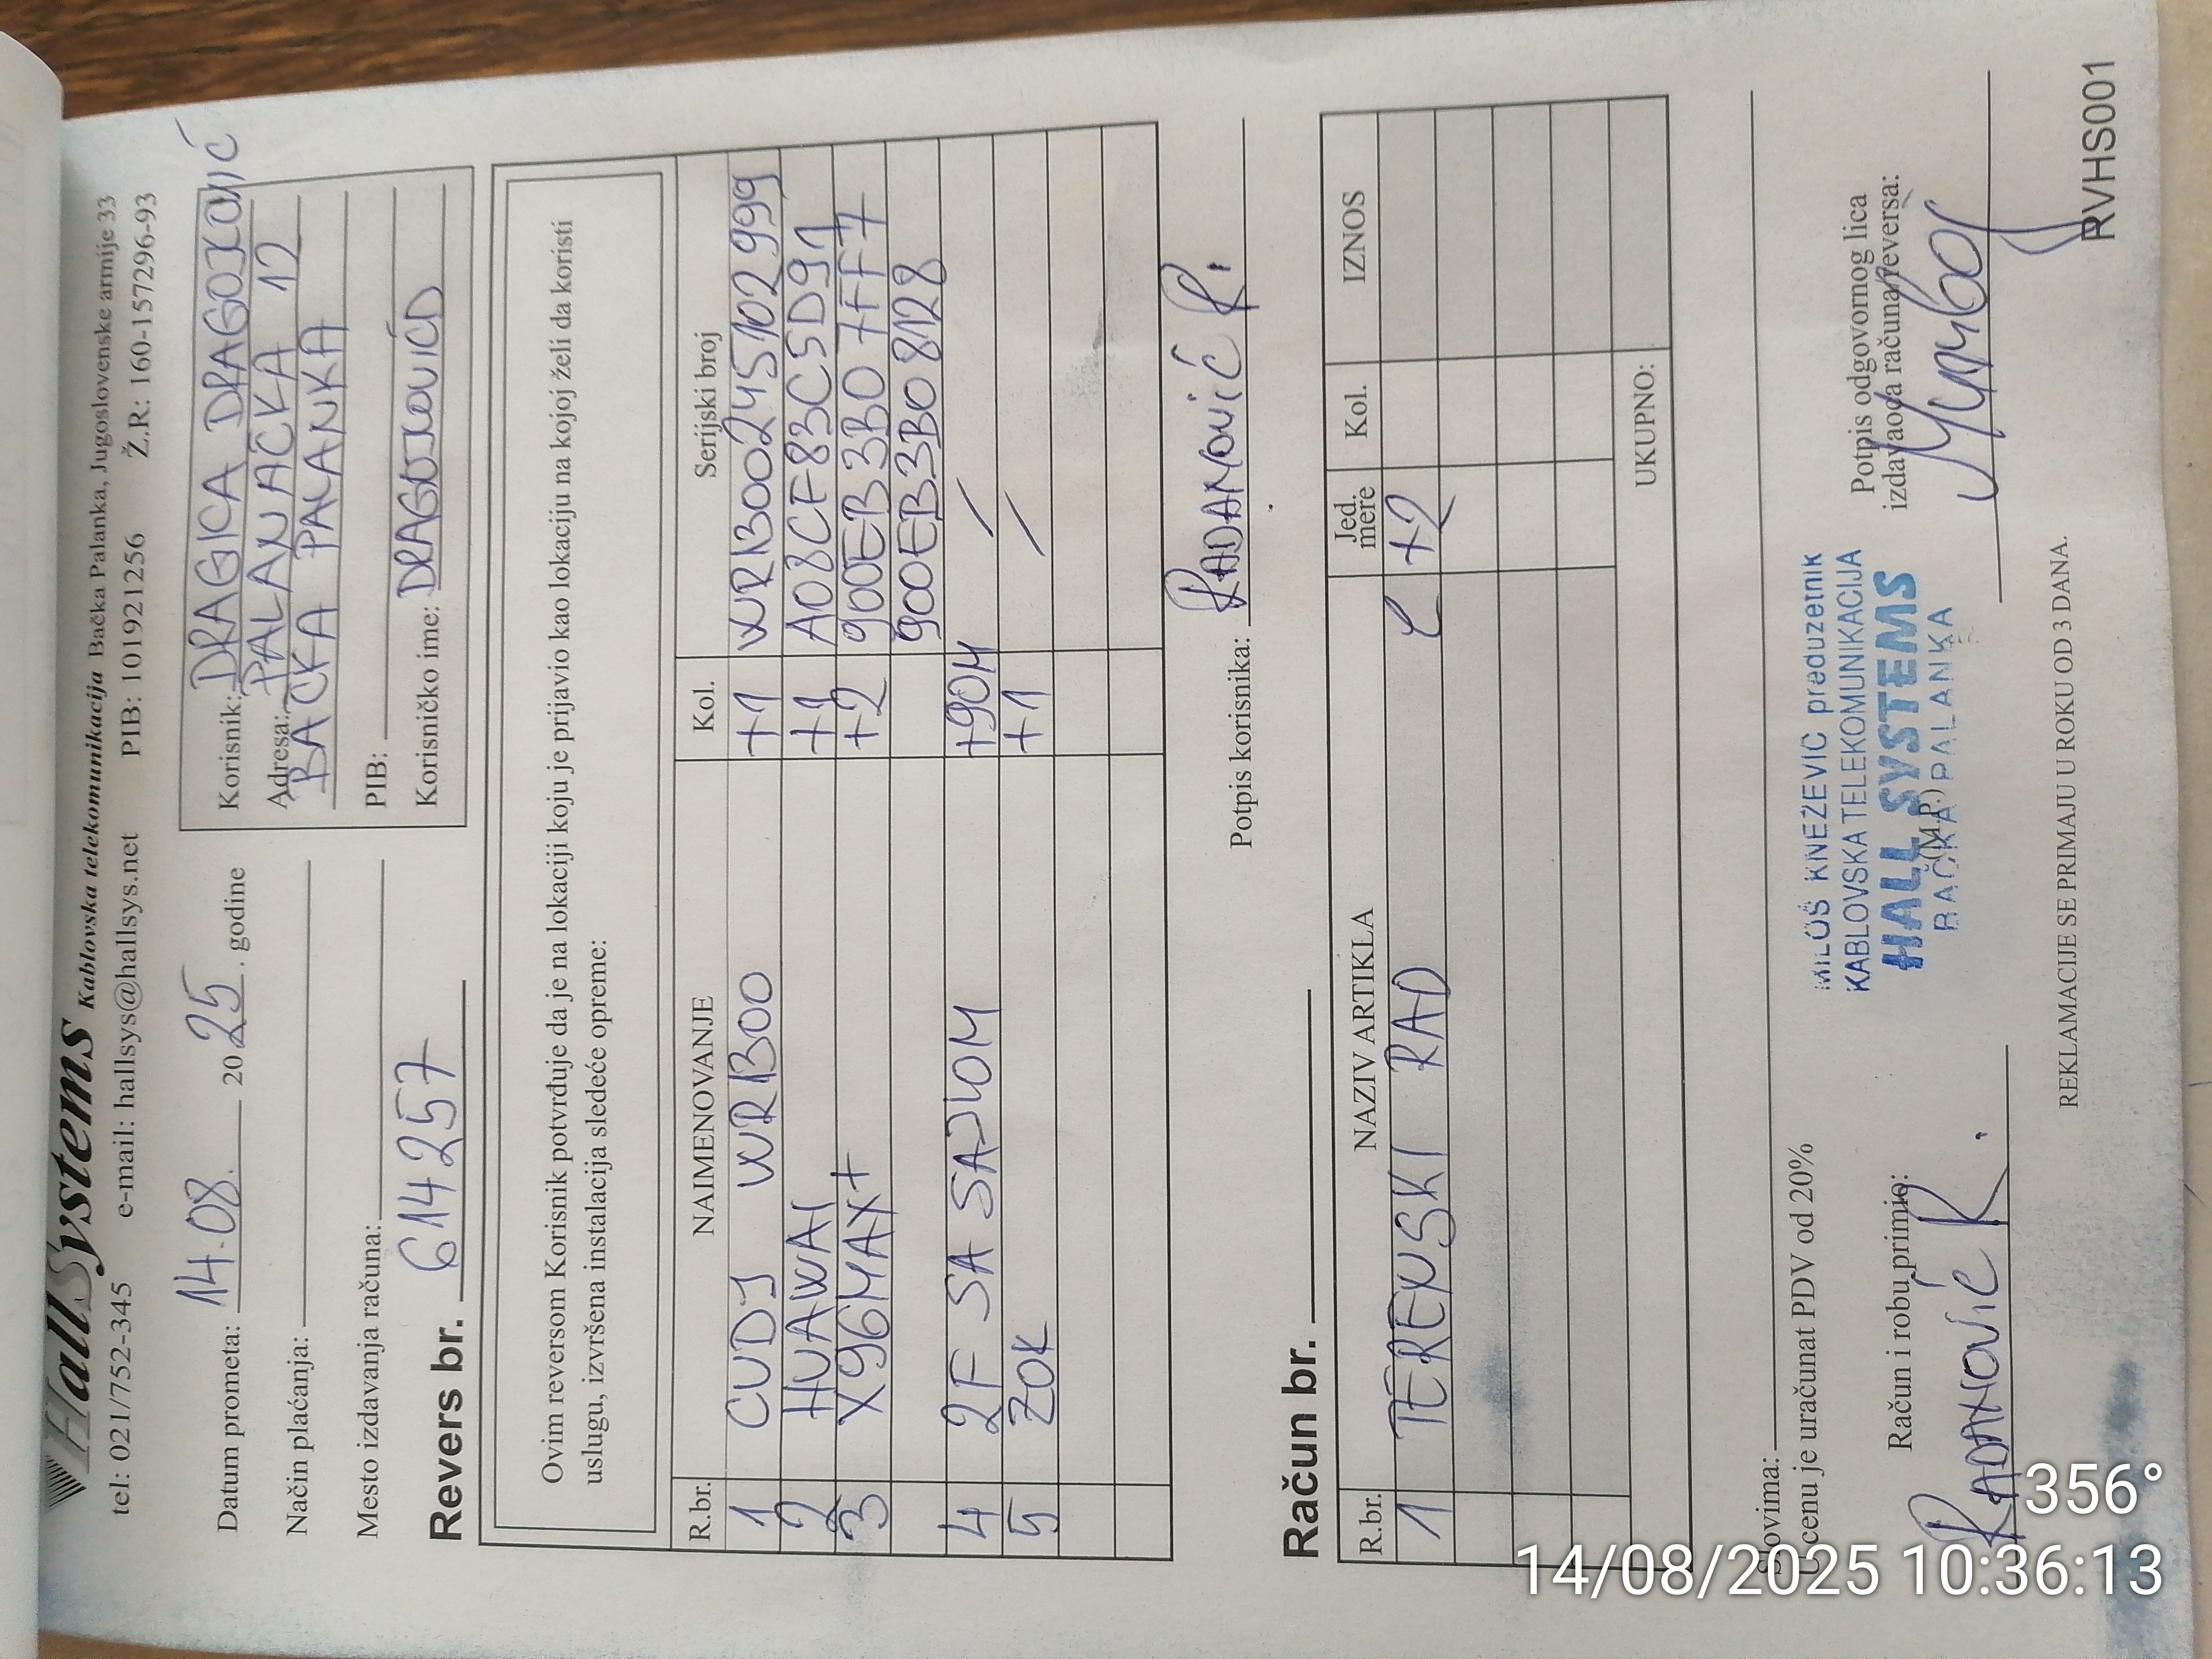 HallSystems Kablovska telekomunikacija Bačka Palanka, Jugoslovenske armije 33
tel: 021/752-345 e-mail: hallsys@hallsys.net PIB: 101921256 Ž.R: 160-157296-93
Datum prometa: 14.08. 2025. godine
Način plaćanja:
Mesto izdavanja računa:
Revers br. 614257
Korisnik: DRAGICA DRAGOJOVIĆ
Adresa: PALANAČKA 12
BAČKA PALANKA
PIB:
Korisničko ime: DRAGOJOVIĆD
Ovim reversom Korisnik potvrđuje da je na lokaciji koju je prijavio kao lokaciju na kojoj želi da koristi
uslugu, izvršena instalacija sledeće opreme:
R.br. NAIMENOVANJE Kol. Serijski broj
1 CUDY WR1300 +1 WR1300245102999
2 HUAWAI +1 A08CF83C5D91
3 X96MAX+ +2 900EB3B07FF7
900EB3B08128
4 2F SA SAJLOM +90M /
5 ZOK +1 /
Potpis korisnika: RADANOVIĆ R.
Račun br.
R.br. NAZIV ARTIKLA Jed. mere Kol. IZNOS
1 TERENSKI RAD +2
UKUPNO:
Slovima:
U cenu je uračunat PDV od 20%
Račun i robu primio:
RADANOVIĆ R.
MILOŠ KNEŽEVIĆ preduzetnik
KABLOVSKA TELEKOMUNIKACIJA
HALL SYSTEMS
BAČKA PALANKA
(M.P.)
Potpis odgovornog lica
izdavaoca računa/reversa:
REKLAMACIJE SE PRIMAJU U ROKU OD 3 DANA.
RVHS001
356°
14/08/2025 10:36:13